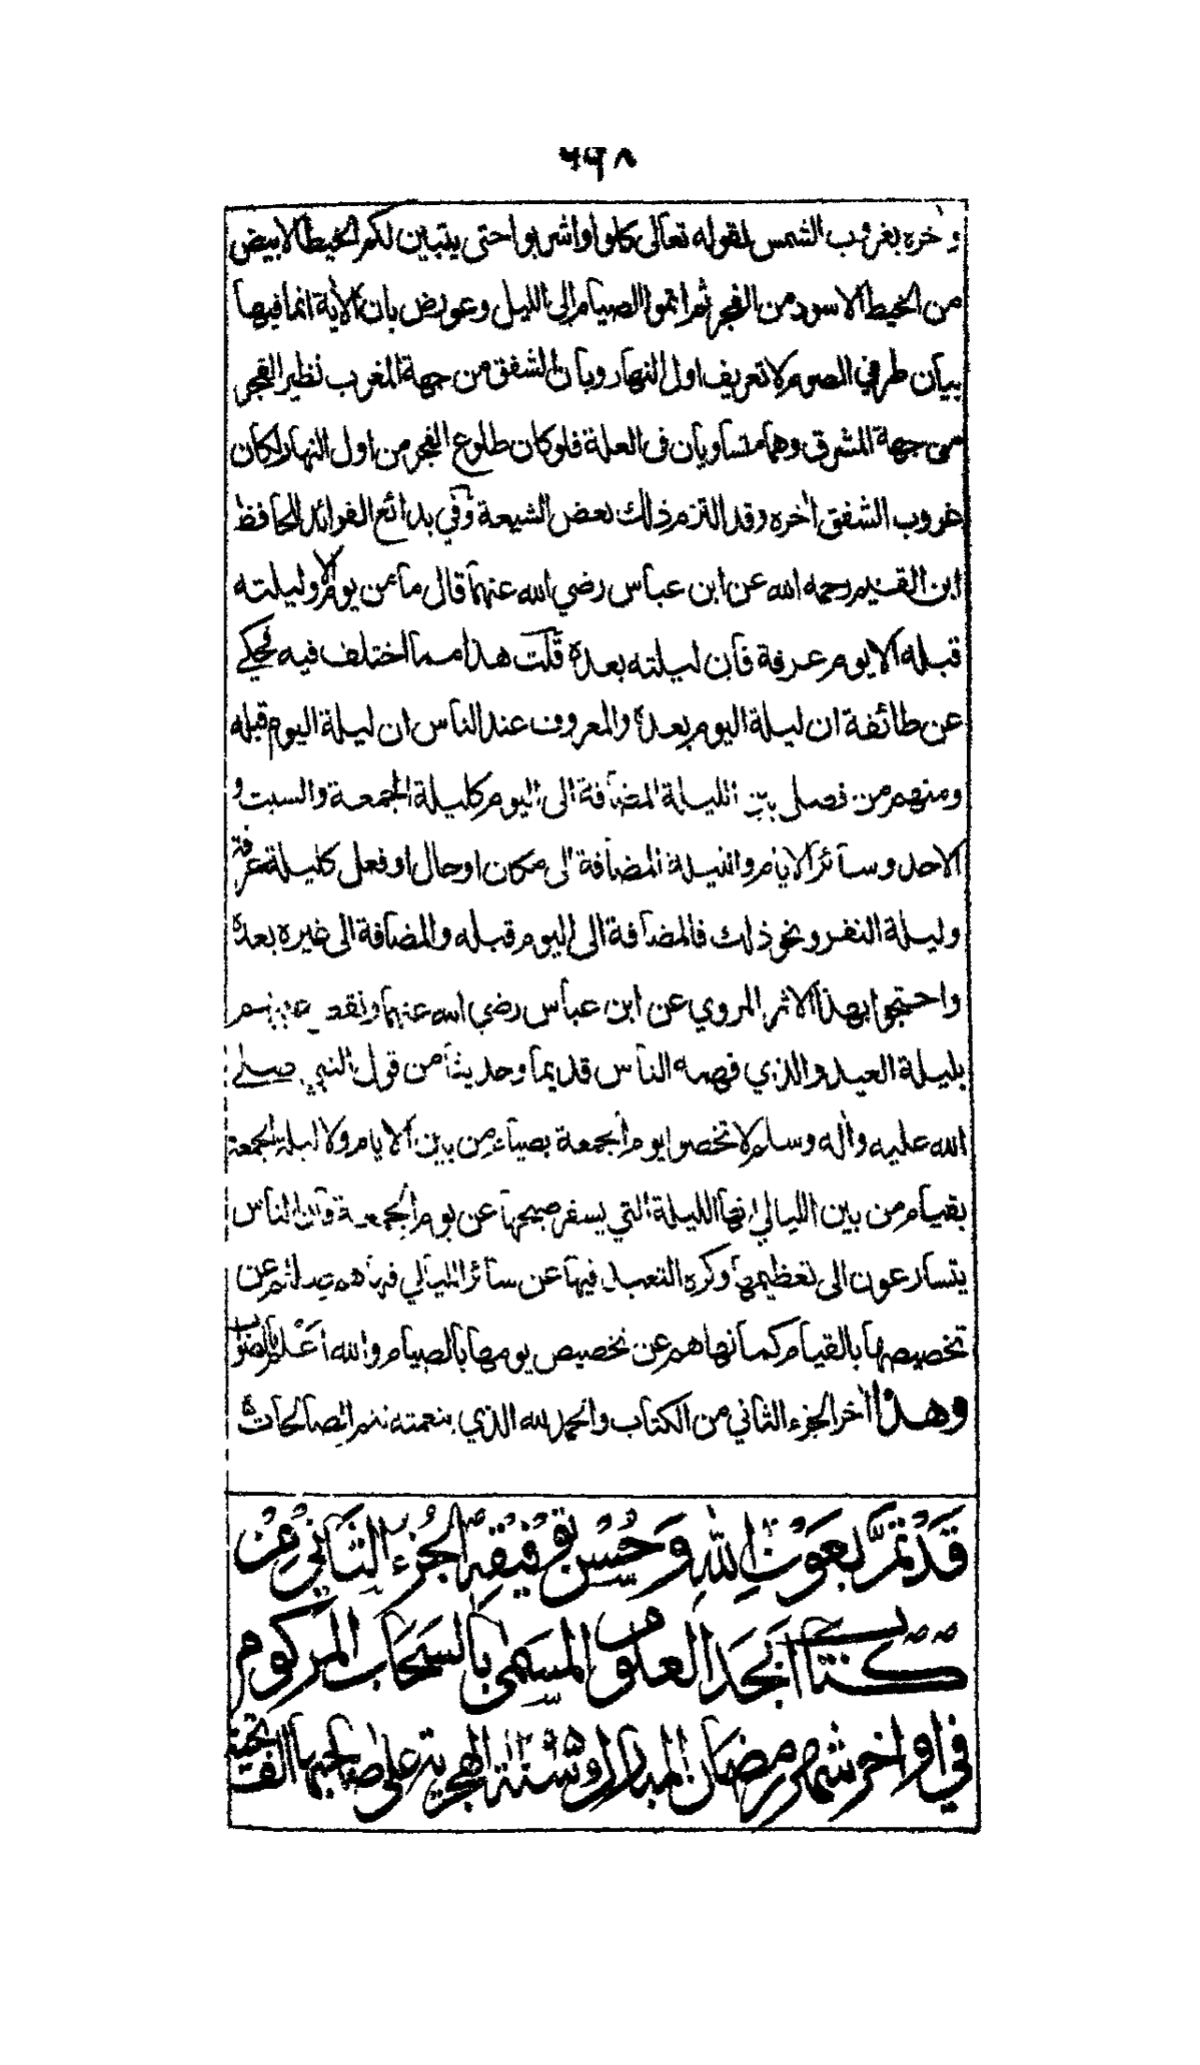 ٦٦٨
وآخره بغروب الشمس لقوله تعالى كلوا واشربوا حتى يتبين لكم الخيط الابيض
من الخيط الاسود من الفجر ثم اتموا الصيام الى الليل وعورض بان الآية انما فيها
بيان طرفي الصوم لا تعريف اول النهار وبان الشفق من جهة المغرب نظير الفجر
من جهة المشرق وهما متساويان في العلة فلو كان طلوع الفجر من اول النهار لكان
غروب الشفق آخره وقد التزم ذلك بعض الشيعة وفي بدائع الفوائد للحافظ
ابن القيم رحمه الله عن ابن عباس رضي الله عنهما قال ما من يوم الا وليلته
قبله الا يوم عرفة فان ليلته بعده قلت هذا مما اختلف فيه فحكي
عن طائفة ان ليلة اليوم بعده والمعروف عند الناس ان ليلة اليوم قبله
ومنهم من فصل بين الليلة المضافة الى اليوم كليلة الجمعة والسبت و
الاحد وسائر الايام والليلة المضافة الى مكان او حال او فعل كليلة عرفة
وليلة النفر ونحو ذلك فالمضافة الى اليوم قبله والمضافة الى غيره بعده
واحتجوا بهذا الاثر المروي عن ابن عباس رضي الله عنهما ونقض عليهم
بليلة العيد والذي فهمه الناس قديما وحديثا من قول النبي صلى
الله عليه وآله وسلم لا تخصوا يوم الجمعة بصيام من بين الايام ولا ليلة الجمعة
بقيام من بين الليالي انها الليلة التي يسفر صبحها عن يوم الجمعة فان الناس
يتسارعون الى تعظيمها وكره التعبد فيها عن سائر الليالي فنهاهم عن
تخصيصها بالقيام كما نهاهم عن تخصيص يومها بالصيام والله اعلم بالصواب
وهذا آخر الجزء الثاني من الكتاب والحمد لله الذي بنعمته تتم الصالحات
قَدْ تَمَّ بِعَوْنِ اللهِ وَحُسْنِ تَوْفِيْقِهِ الْجُزْءُ الثَّانِي مِنْ
كتاب ابجد العلوم المسمى بالسحاب المركوم
في اواخر شهر رمضان المبارك سنة الهجرية على صاحبها الف تحية